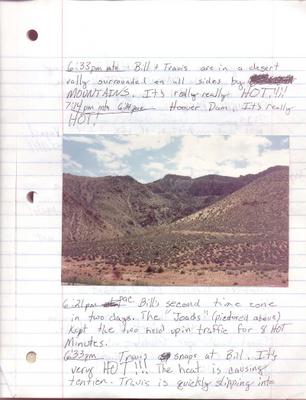 6:33pm mtn Bill & Travis are in a desert
vally surrounded on all sides by
MOUNTAINS. It's rally really HOT!!!!
7:14 pm mtn 6:14 pac Hoover Dam. It's really
HOT!
6:21pm pac Bill's second time zone
in two days. The "Joads" (pictured above)
kept the two held up in traffic for 8 HOT
Minutes.
6:33pm Travis snaps at Bill. It's
very HOT!!! The heat is causing
tention. Travis is quickly slipping into